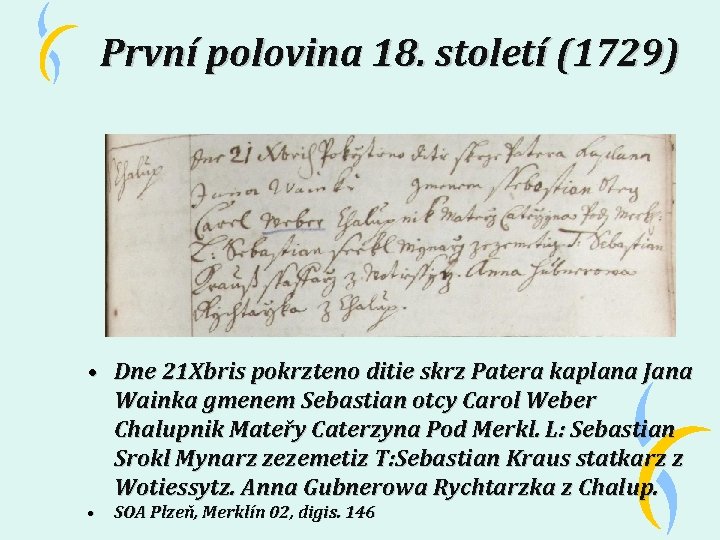 První polovina 18. století (1729)
Chalup.
Dne 21 Xbris Pokrzteno ditie skrze Patera Kaplana
Jana Wainka gmenem Sebastian Otcy
Carel Weber Chalupnik Materzy Caterzyna Pod Merkl:
L: Sebastian Mynarz zezemetiz T: Sebastian
Krauß z Wotiessytz. Anna Hubnerowa
Rychtarzka z Chalup.
• Dne 21Xbris pokrzteno ditie skrz Patera kaplana Jana
Wainka gmenem Sebastian otcy Carol Weber
Chalupnik Mateřy Caterzyna Pod Merkl. L: Sebastian
Srokl Mynarz zezemetiz T: Sebastian Kraus statkarz z
Wotiessytz. Anna Gubnerowa Rychtarzka z Chalup.
• SOA Plzeň, Merklín 02, digis. 146